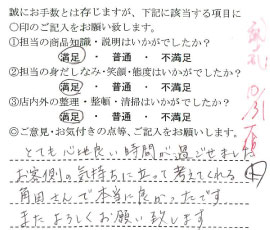 誠にお手数とは存じますが、下記に該当する項目に
○印のご記入をお願い致します。
①担当の商品知識・説明はいかがでしたか？
満足・普通・不満足
②担当の身だしなみ・笑顔・態度はいかがでしたか？
満足・普通・不満足
③店内外の整理・整頓・清掃はいかがでしたか？
満足・普通・不満足
◎ご意見・お気付きの点等、ご記入をお願いします。
とても心地良い時間が過ごせました
お実側の気持ちに立って考えてくれる
角田さんで本当に良かったです
またよろしくお願い致します
10/31